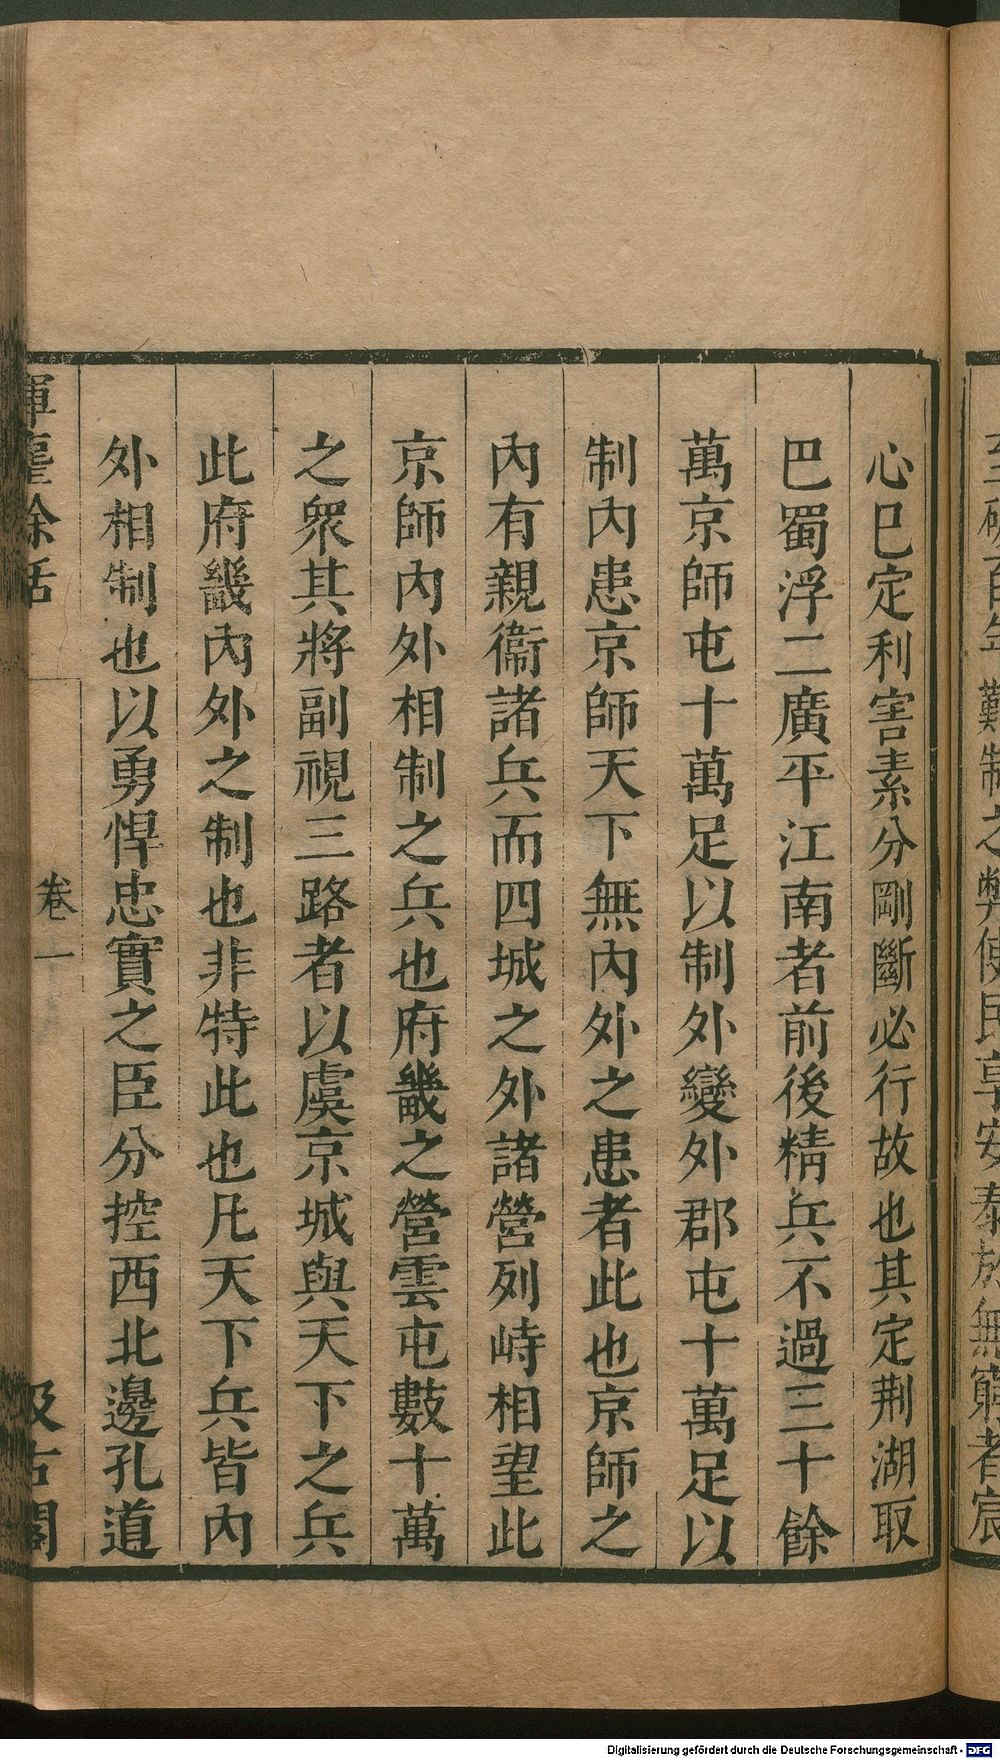 至破百年難制之弊使民享安泰於無窮者宸
心巳定利害素分剛斷必行故也其定荆湖取
巴蜀浮二廣平江南者前後精兵不過三十餘
萬京師屯十萬足以制外變外郡屯十萬足以
制內患京師天下無內外之患者此也京師之
內有親衞諸兵而四城之外諸營列峙相望此
京師內外相制之兵也府畿之營雲屯數十萬
之衆其將副視三路者以虞京城與天下之兵
此府畿內外之制也非特此也凡天下兵皆內
外相制也以勇悍忠實之臣分控西北邊孔道
揮麈餘話
卷一
汲古閣
Digitalisierung gefördert durch die Deutsche Forschungsgemeinschaft - DFG